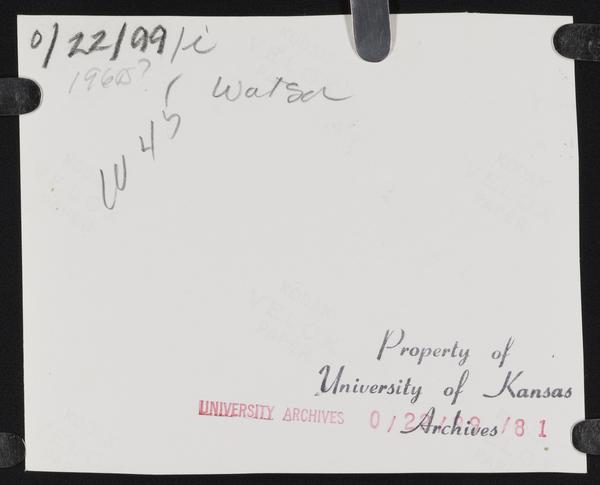 0/22/99/i
1960s?
Watson
W 45
Property of
University of Kansas
Archives
UNIVERSITY ARCHIVES 0/22/99 /81
KODAK
VELOX
PAPER